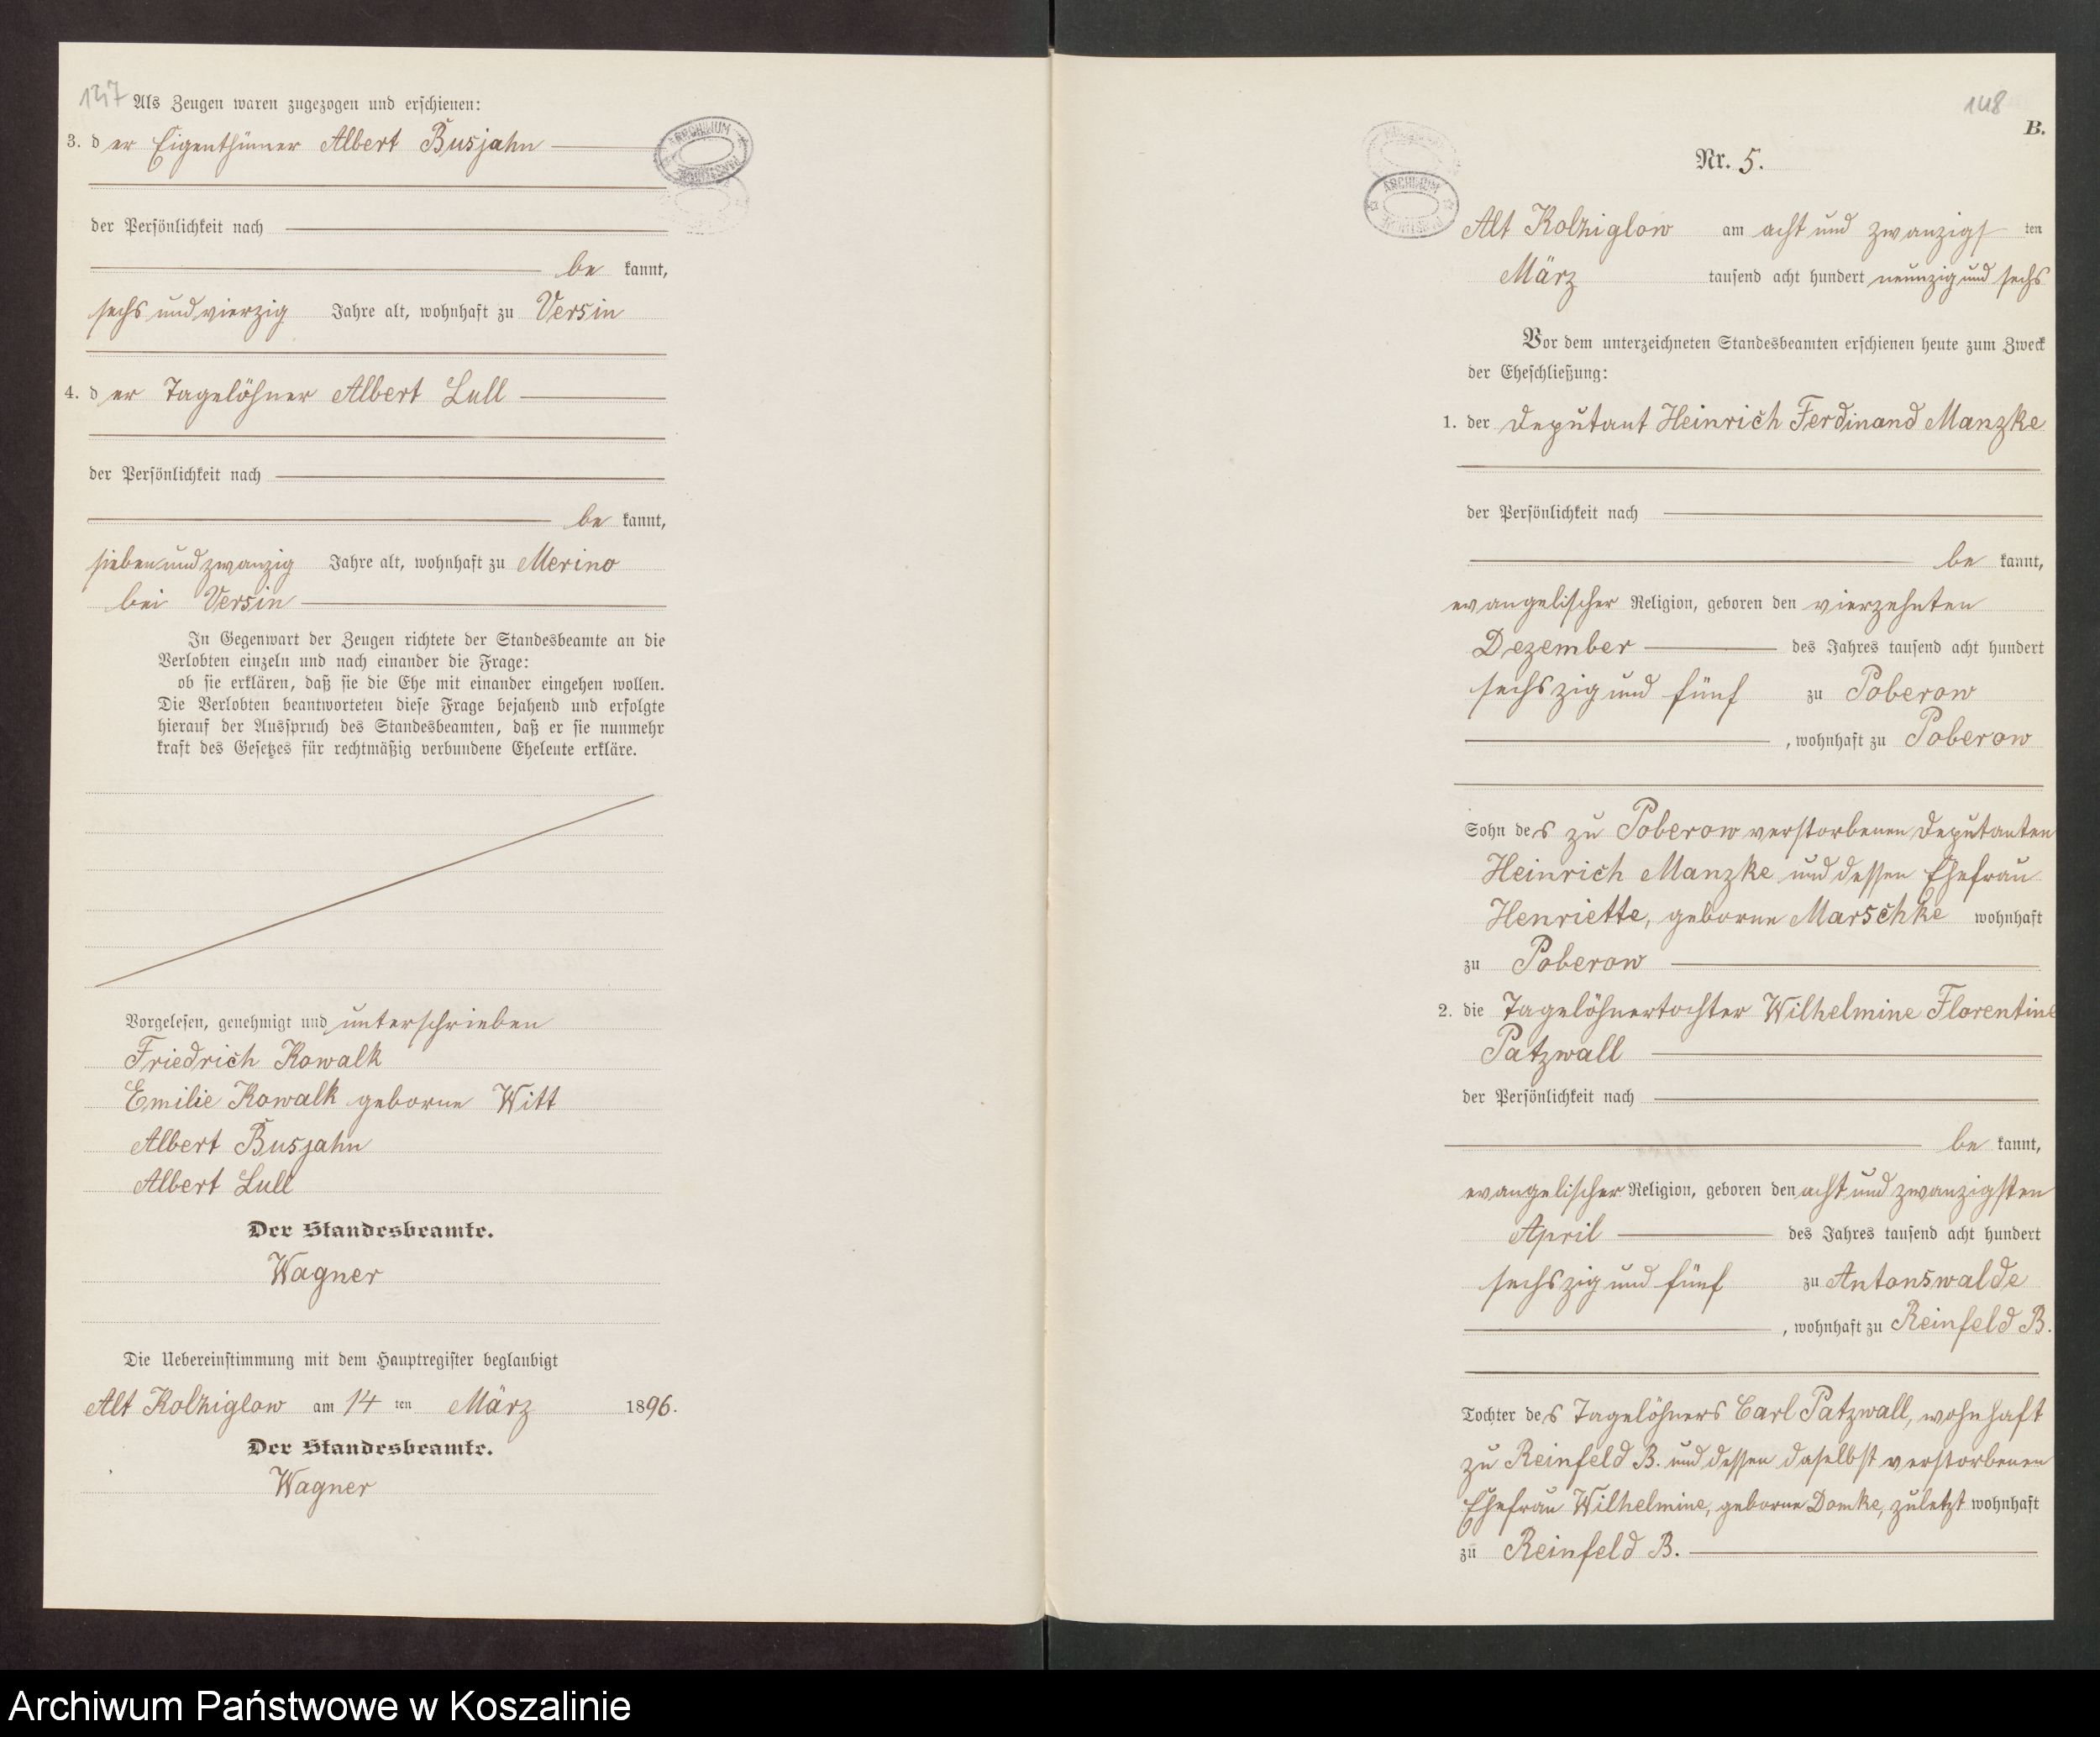 147
Als Zeugen waren zugezogen und erschienen:
3. der Eigenthümer Albert Busjahn
der Persönlichkeit nach
be kannt,
sechs und vierzig Jahre alt, wohnhaft zu Versin
4. der Tagelöhner Albert Lull
der Persönlichkeit nach
be kannt,
sieben und zwanzig Jahre alt, wohnhaft zu Merino
bei Versin
In Gegenwart der Zeugen richtete der Standesbeamte an die
Verlobten einzeln und nach einander die Frage:
ob sie erklären, daß sie die Ehe mit einander eingehen wollen.
Die Verlobten beantworteten diese Frage bejahend und erfolgte
hierauf der Ausspruch des Standesbeamten, daß er sie nunmehr
kraft des Gesetzes für rechtmäßig verbundene Eheleute erkläre.
Vorgelesen, genehmigt und unterschrieben
Friedrich Kowalk
Emilie Kowalk geborne Witt
Albert Busjahn
Albert Lull
Der Standesbeamte.
Wagner
Die Uebereinstimmung mit dem Hauptregister beglaubigt
Alt Kolziglow am 14 ten März 1896.
Der Standesbeamte.
Wagner
ARCHIWUM
148
B.
Nr. 5.
ARCHIWUM
Alt Kolziglow am acht und zwanzigs ten
März tausend acht hundert neunzig und sechs
Vor dem unterzeichneten Standesbeamten erschienen heute zum Zweck
der Eheschließung:
1. der Deputant Heinrich Ferdinand Manzke
der Persönlichkeit nach
be kannt,
evangelischer Religion, geboren den vierzehnten
Dezember des Jahres tausend acht hundert
sechszig und fünf zu Poberow
, wohnhaft zu Poberow
Sohn des zu Poberow verstorbenen Deputanten
Heinrich Manzke und dessen Ehefrau
Henriette, geborne Marschke wohnhaft
zu Poberow
2. die Tagelöhnertochter Wilhelmine Florentine
Patzwall
der Persönlichkeit nach
be kannt,
evangelischer Religion, geboren den acht und zwanzigsten
April des Jahres tausend acht hundert
sechszig und fünf zu Antonswalde
, wohnhaft zu Reinfeld B.
Tochter des Tagelöhners Carl Patzwall, wohnhaft
zu Reinfeld B. und dessen daselbst verstorbenen
Ehefrau Wilhelmine, geborne Domke, zuletzt wohnhaft
zu Reinfeld B.
Archiwum Państwowe w Koszalinie